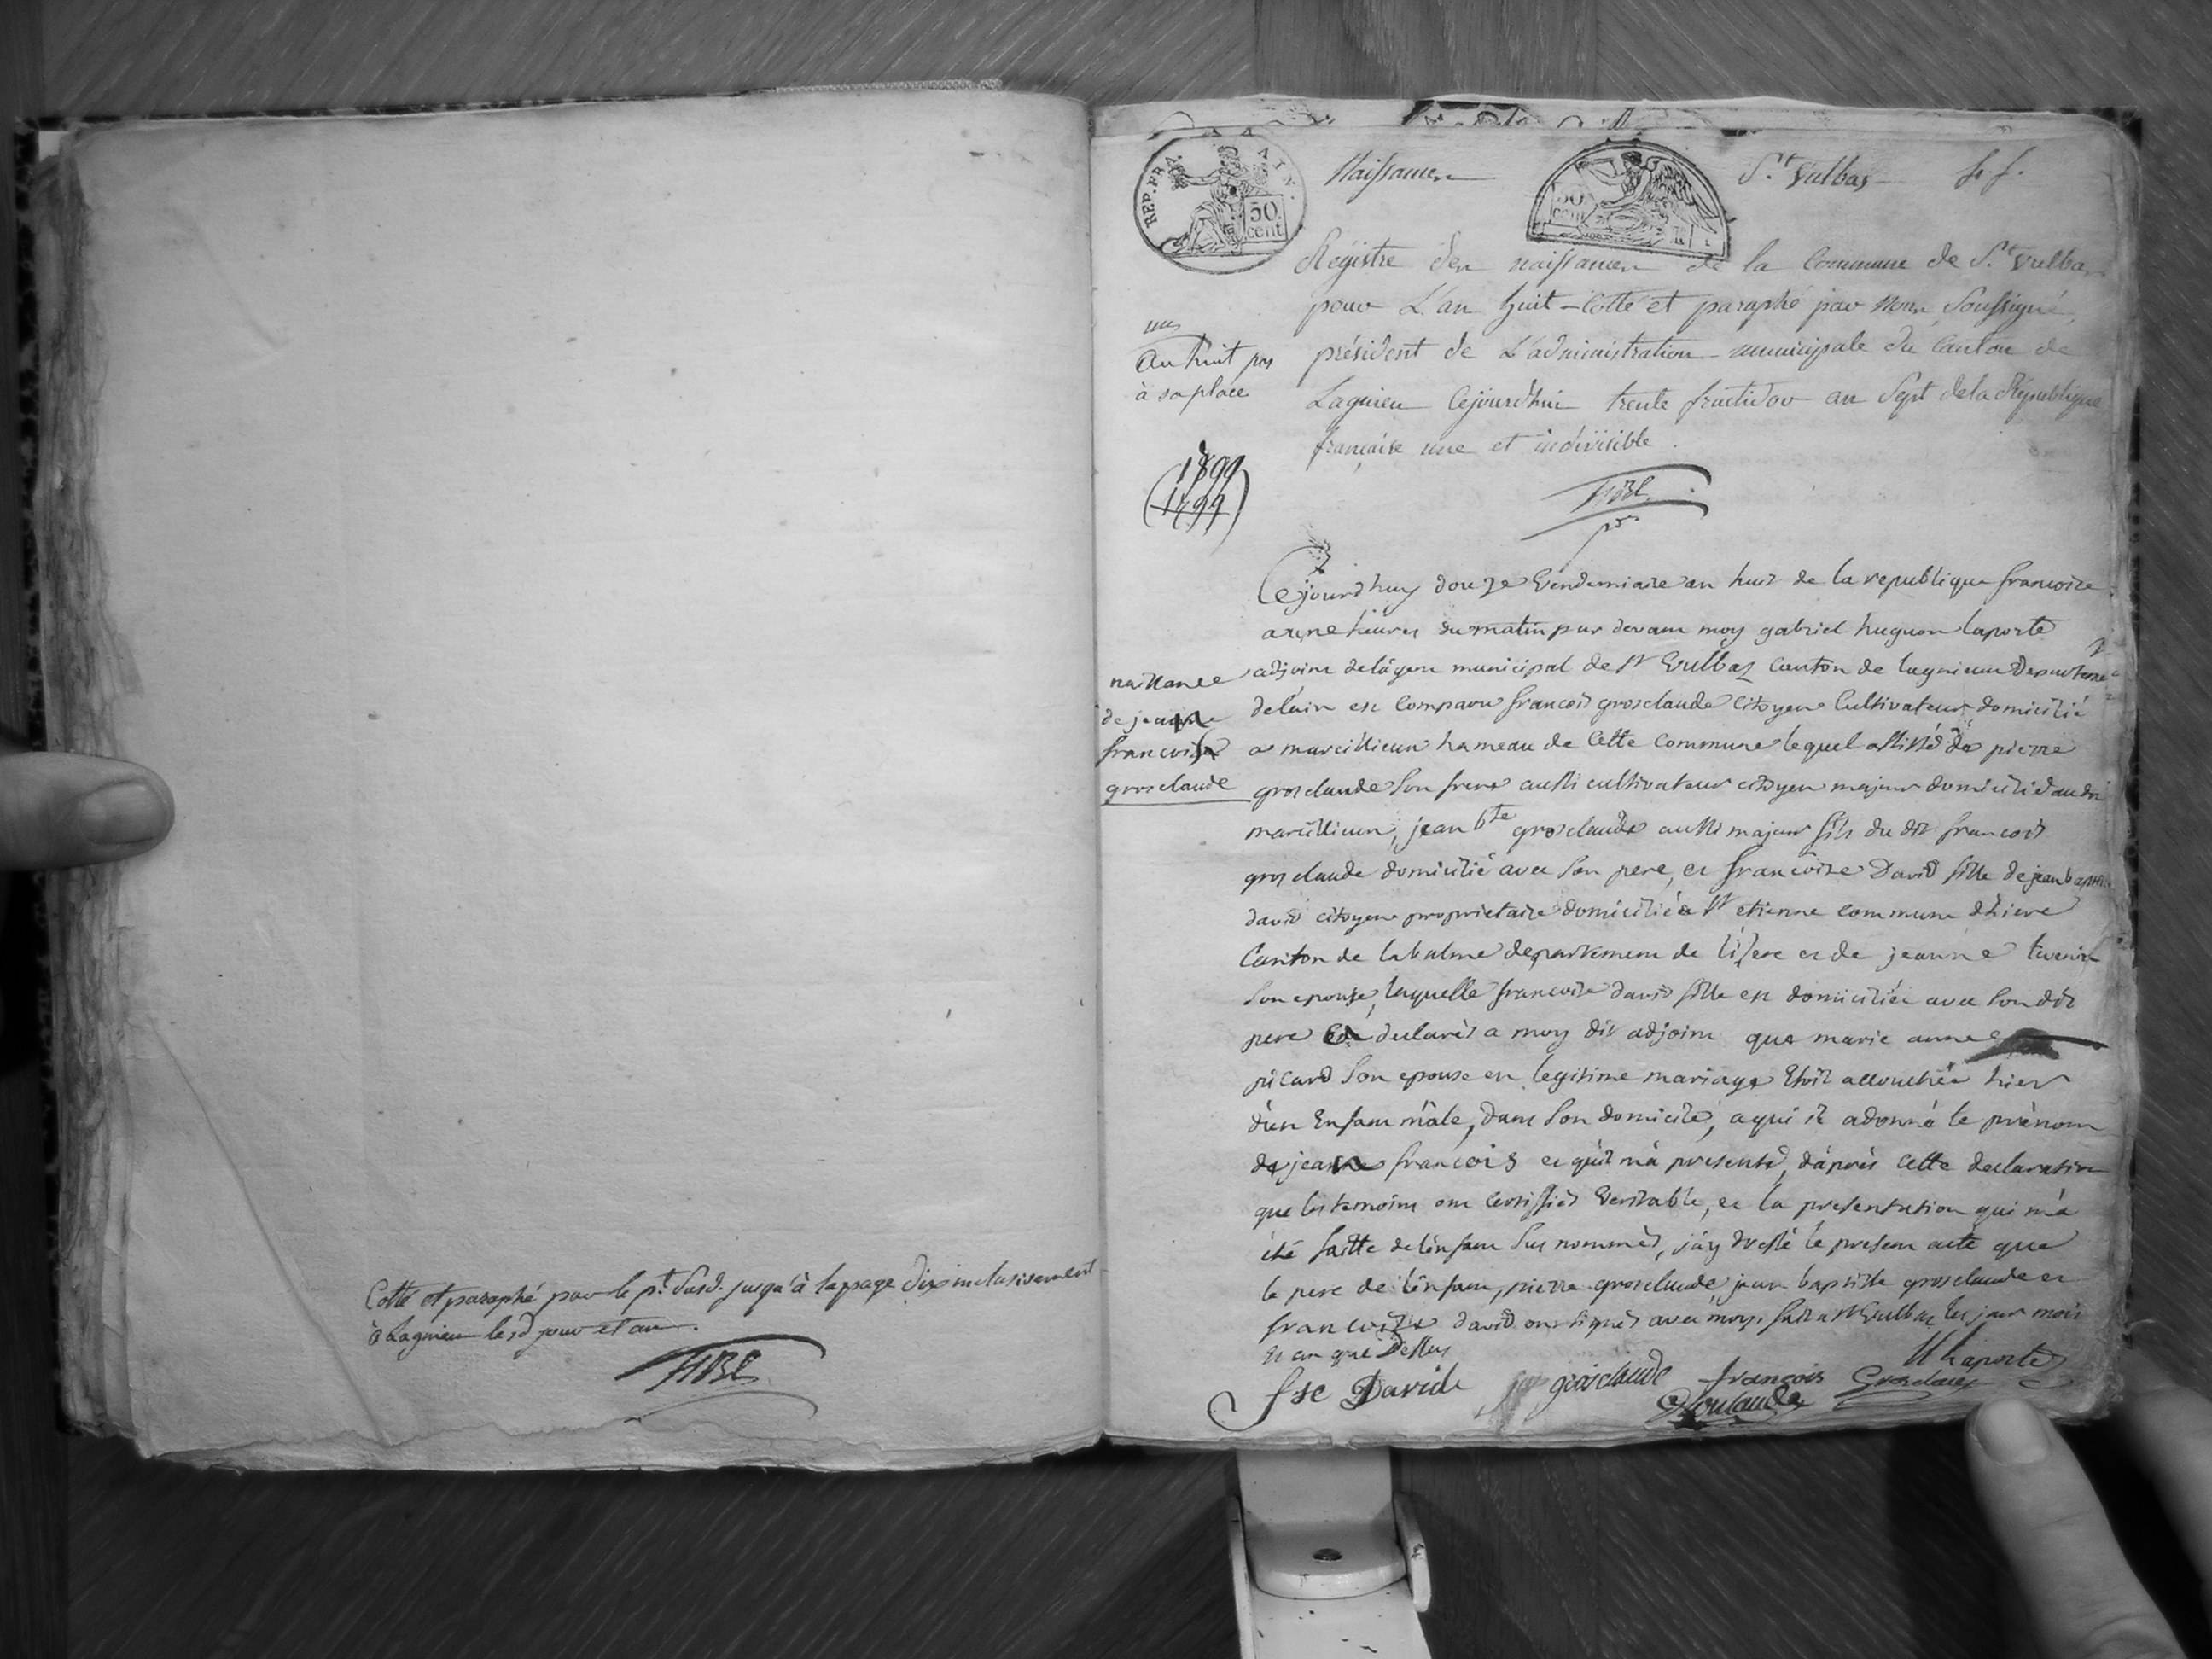 Cotté et paraphé par le pt. susd. jusqu'à la page dix inclusivement
à Lagnieu lesd jour et an.
REP. FRA. AIN.
50 cent
Naissances
50 cent
St. Vulbas
un
an huit pas
à sa place
1899
(1799)
Régistre des naissances de la Commune de St. Vulbas
pour L'an huit - Cotté et paraphé par Nous, Soussigné,
président de L'administration municipale du Canton de
Lagnieu Cejourdhui trente fructidor an Sept de la République
française une et indivisible.
Cejourdhuy douze Vendemiaire an huit de la republique francoise
a heures du matin par devant moy gabriel hugon laporte
adjoint de l'agent municipal de St Vulbas Canton de lagnieu Departeme
naissance
de jean
francois
grosclaude
de l'ain est Comparu francois grosclaude Citoyen Cultivateur domicilié
a marcillieux hameau de Cette Commune lequel assisté de pierre
grosclaude son frere aussi cultivateur citoyen majeur domicilié audit
marcillieux, jean bte grosclaude aussi majeur fils du dit francois
grosclaude domicilié avec son pere, et francoise David fille de jean baptiste
david citoyen proprietaire domicilié a St etienne commune d'hiere
Canton de labalme departement de l'isere et de jeanne
son epouse, laquelle francoise david fille est domiciliée avec son dit
pere declarés a moy dit adjoint que marie anne
picard son epouse en legitime mariage etoit accouchée hier
d'un Enfant mâle, dans son domicile, a qui il a donné le prénom
de jean francois et qu'il m'a presenté, d'après cette declaration
que les temoins ont certiffiés veritable, et la presentation qui m'a
été faitte de l'enfant sus nommés, j'ay dressé le present acte que
le pere de l'enfant, pierre grosclaude, jean baptiste grosclaude et
francoise david ont signés avec moy, fait a St Vulbas les jour mois
et an que Dessus
fse David grosclaude francois Grosclaude Laporte